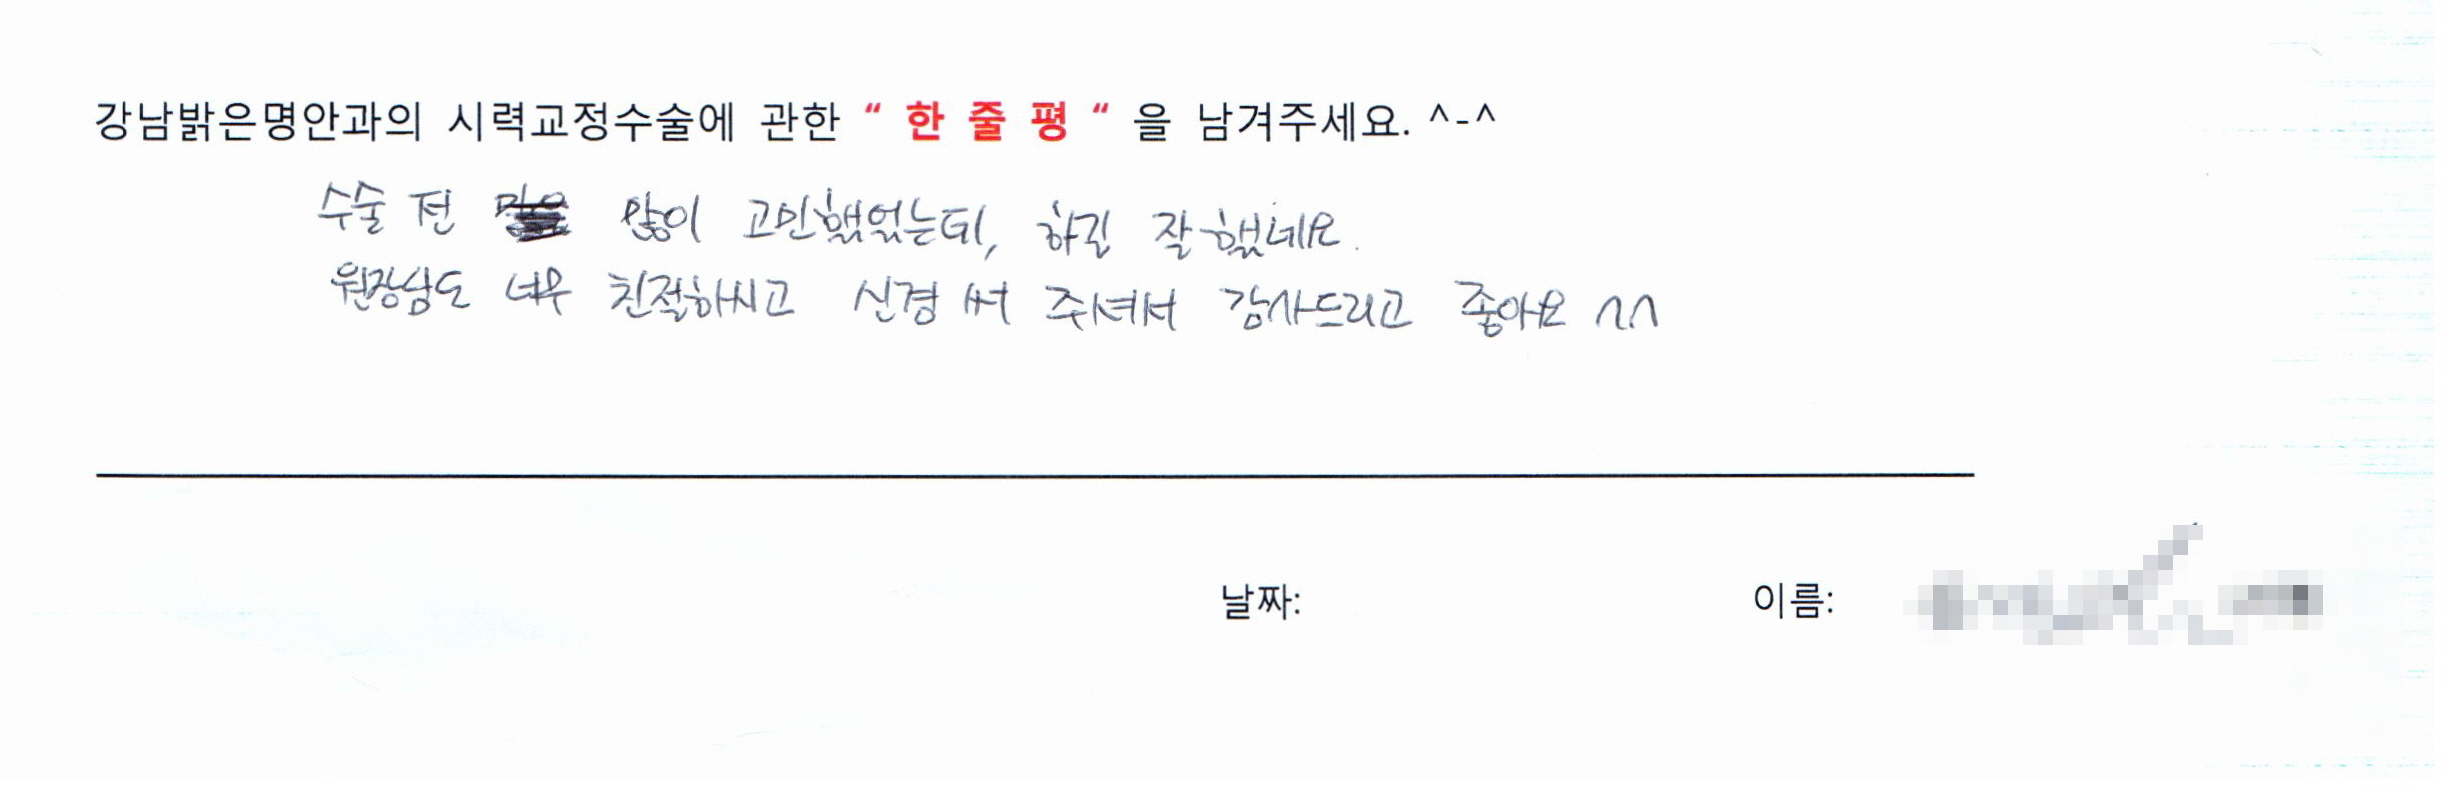 강남밝은명안과의 시력교정수술에 관한 “ 한 줄 평 “ 을 남겨주세요. ^-^
수술 전 많이 고민했었는데, 하길 잘했네요.
원장님도 너무 친절하시고 신경 써 주셔서 감사드리고 좋아요 ^^
날짜: 이름: